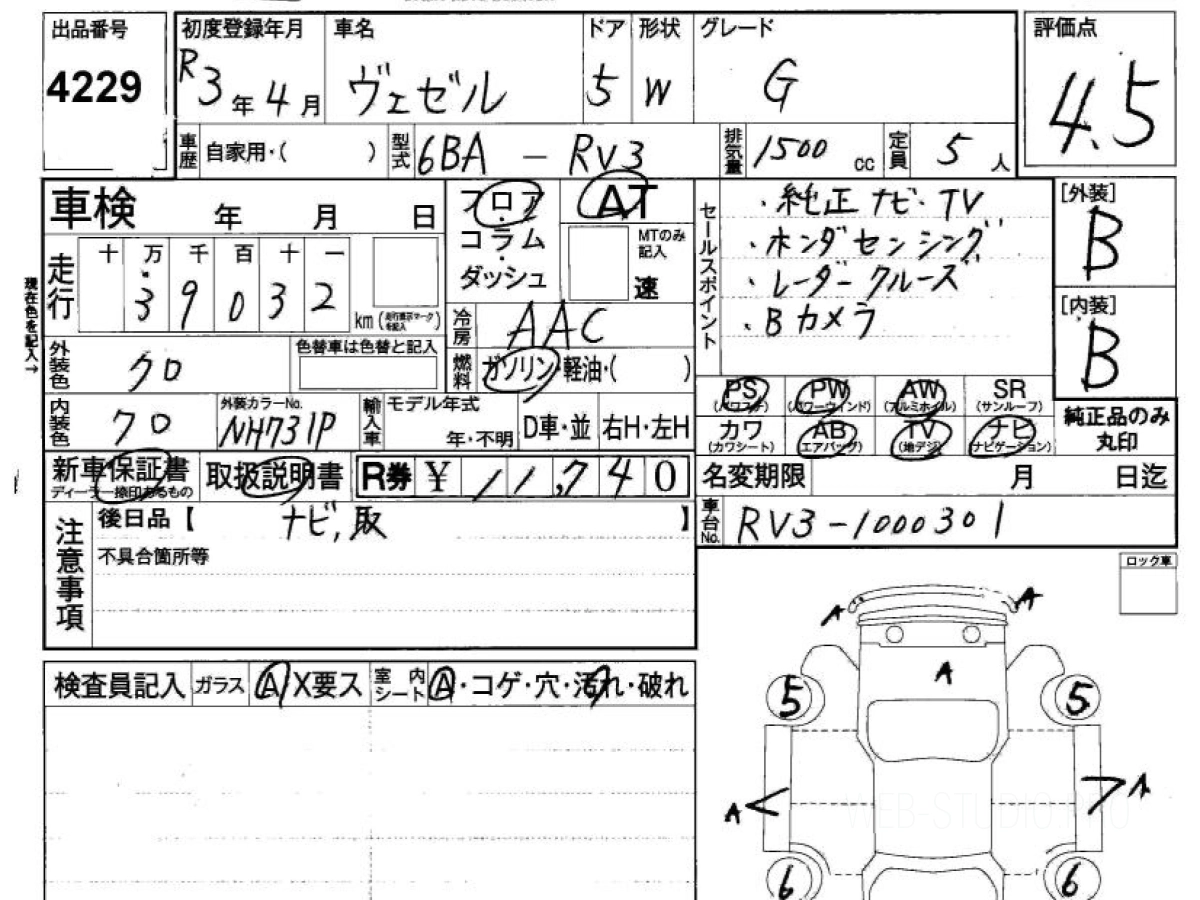 出品番号 初度登録年月 車名 ドア 形状 グレード 評価点
4229 R3年4月 ヴェゼル 5 W G 4.5
車歴 自家用・( ) 型式 6BA - RV3 排気量 1500 cc 定員 5 人
車検 年 月 日 フロア AT セールスポイント ・純正ナビ・TV [外装]
コラム MTのみ記入 ・ホンダセンシング B
走行 十 万 千 百 十 一 ダッシュ 速 ・レーダークルーズ [内装]
現在色を記入→ 3 9 0 3 2 km (走行表示マークを記入) 冷房 AAC ・Bカメラ B
外装色 クロ 色替車は色替と記入 燃料 ガソリン・軽油・( )
PS (パワステ) PW (パワーウインド) AW (アルミホイル) SR (サンルーフ) 純正品のみ丸印
内装色 クロ 外装カラーNo. NH731P 輸入車 モデル年式 年・不明 D車・並 右H・左H カワ (カワシート) AB (エアバッグ) TV (地デジ) ナビ (ナビゲーション)
新車保証書 ディーラー捺印あるもの 取扱説明書 R券 ¥ 11,740 名変期限 月 日迄
注意事項 後日品【 ナビ,取 】 車台No. RV3-1000301
不具合箇所等 ロック車
A A
A
検査員記入 ガラス A X要ス 室内シート A・コゲ・穴・汚れ・破れ
5 5
A A
WEB-STUDIO.PRO
6 6